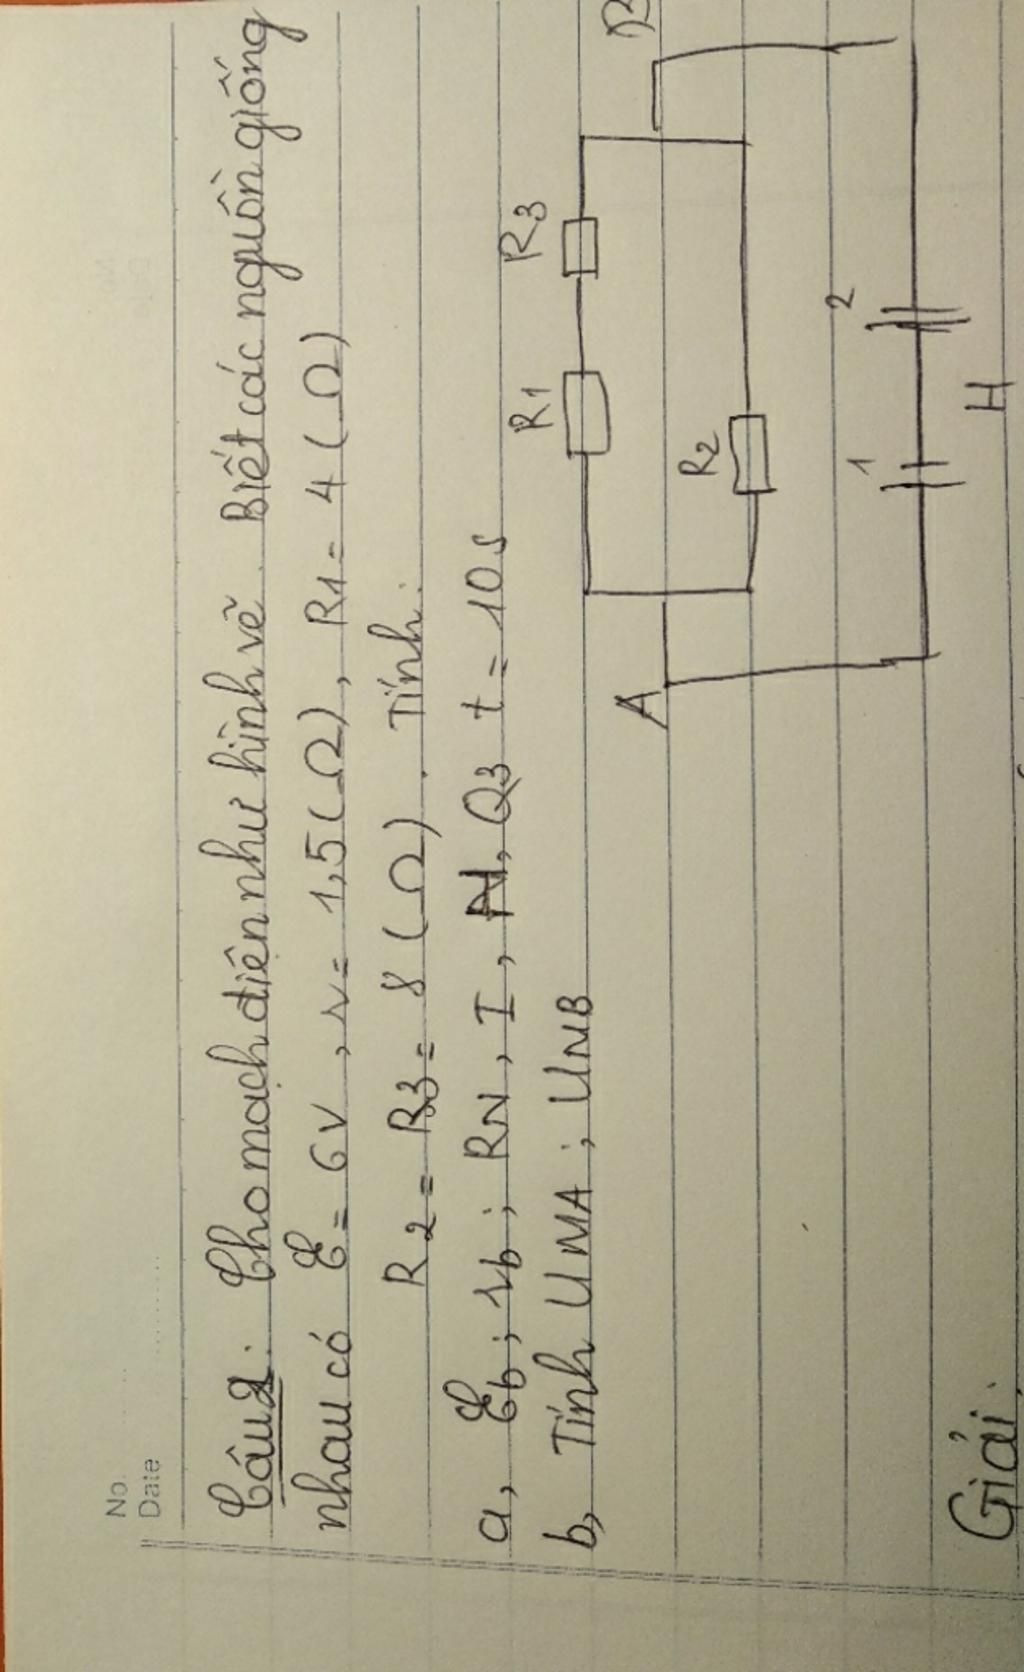 No.
Date
Câu 2: Cho mạch điện như hình vẽ. Biết các nguồn giống
nhau có ℰ = 6V, r = 1,5 (Ω), R1 = 4 (Ω)
R2 = R3 = 8 (Ω). Tính:
a, ℰb; rb; RN, I, H, Q3 t = 10s
b, Tính UMA; UNB
R1 R3
R2
A B
1 2
H
Giải: